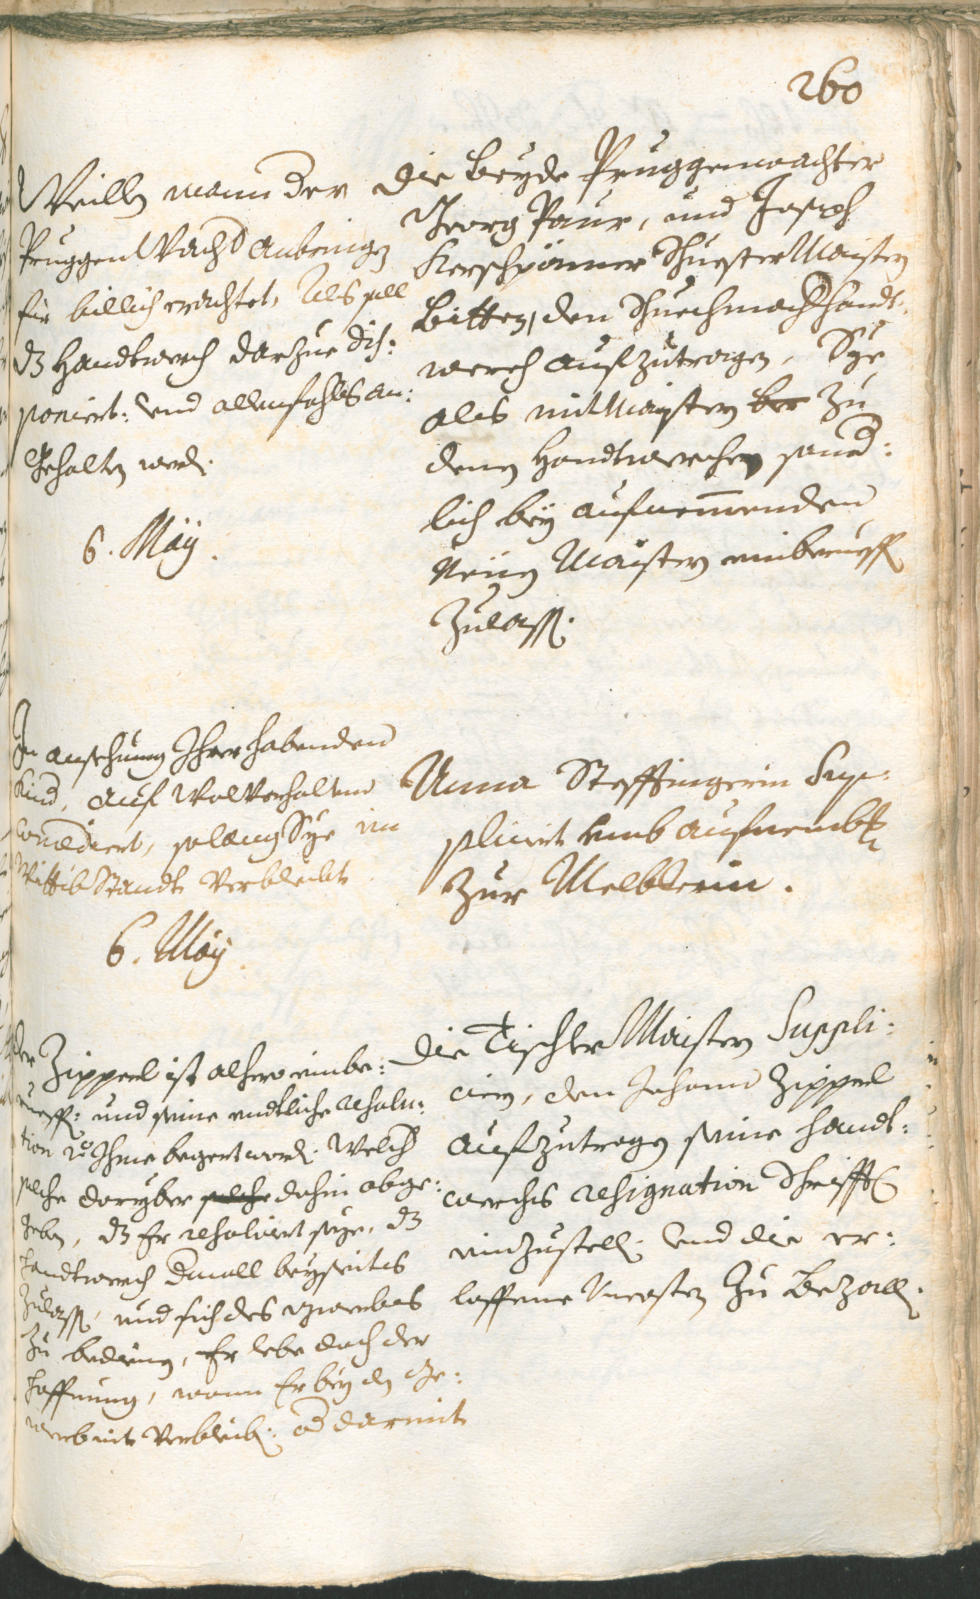 260
Weillen mann der
Pruggen Wacht anbringen
für billich erachtet, Als soll
dz Handtwerch darzue dis:
poniert: und allenfahls an:
gehalten werd.
6. Maÿ.
Die beyde Pruggenwachter
Georg Paur, und Joseph
Kerschpämer Schuester Maister
bitten, den Schuechmach Handt:
werch aufzutragen, Sye
als mitMaistern zu
denen Handtwerchen
lich beÿ aufnemmenden
Neuen Maistern einberueffen
Zulassen.
In ansehung Ihrer habenden
Kind, auf Wolverhalten
Concediert, solang Sye im
Wittib Standt Verbleibt
6. Maÿ
Anna Steffingerin Sup:
pliciert umb aufnembung
zur Melblerin.
der Zipperl ist alhero einbe:
rueff: und seine endtliche resolu:
tion Ihme begert word. Welch
solche daryber dahin abge:
geben, dz Er resolviert seye, dz
Handtwerch beyseits
Zulassen, und sich des gwerbes
zu bedieng, Er lebe doch der
Hoffnung, wann Er bey dem Ge:
werb nit Verbleib: darmit
Die Tischler Maister Suppli:
cieren, dem Johann Zipperl
aufzutragen seine Handt:
werchs resignation Schrifft
einzustellen. und die ver:
loffene Uncosten zu bezallen.